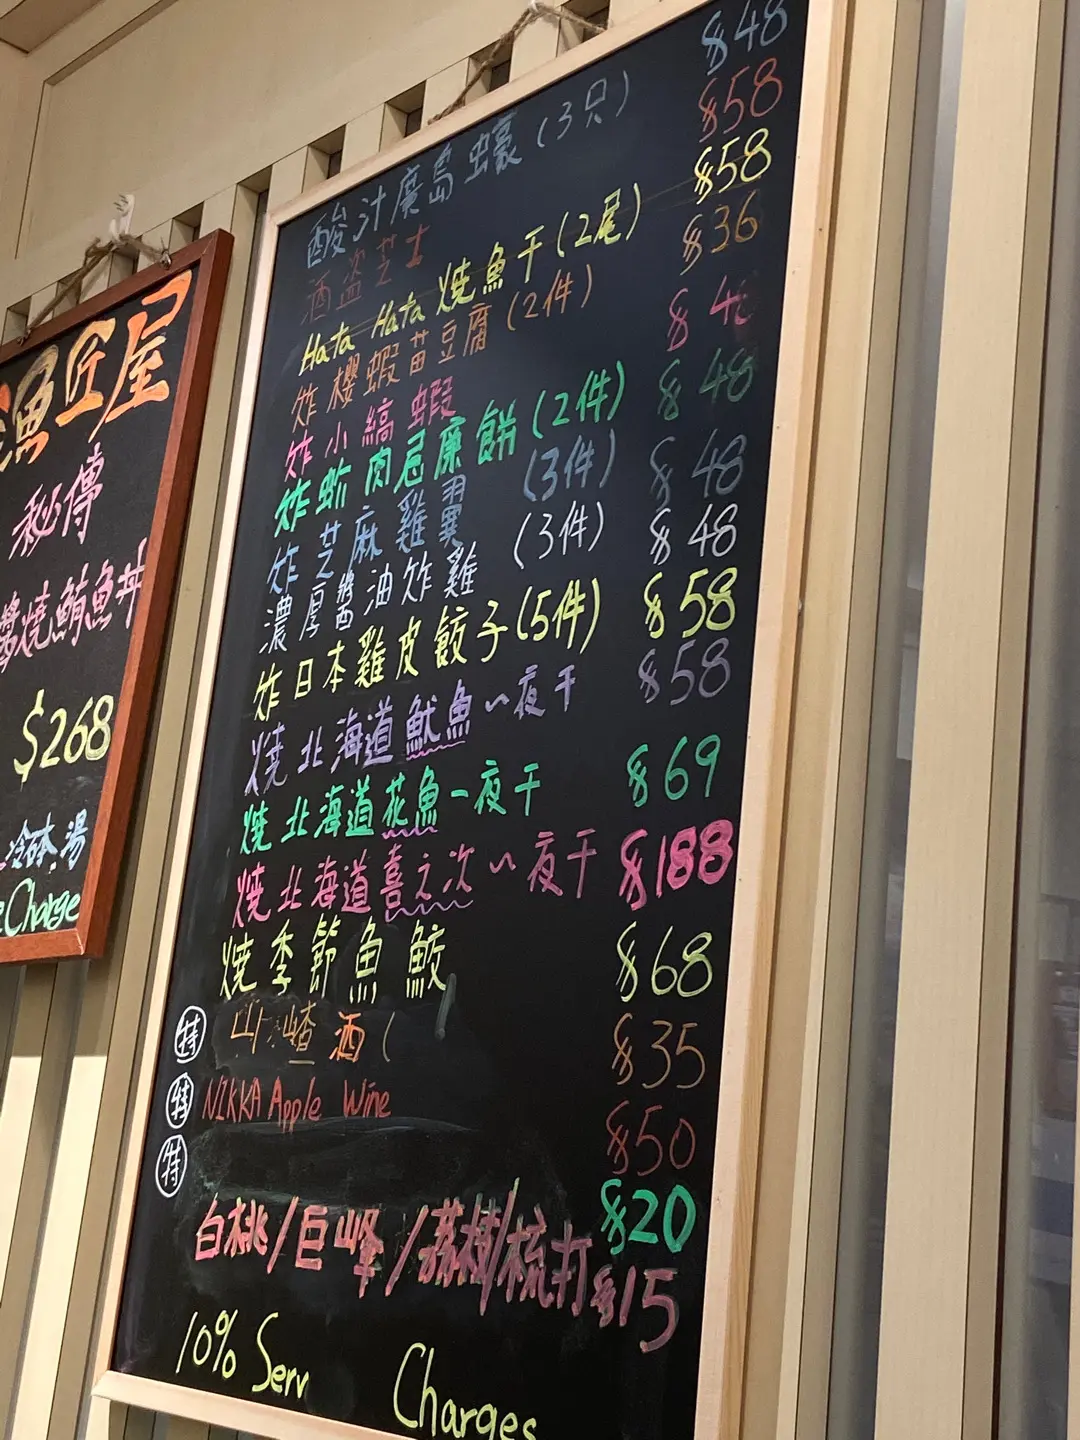 漁匠屋
秘傳
醬燒鮪魚丼
$268
湯
Charge
酸汁廣島蠔(3只) $48
酒盜芝士 $58
Hata Hata 燒魚干(2尾) $58
炸櫻蝦苗豆腐(2件) $36
炸小縞蝦 $4
炸蚧肉忌廉餅(2件) $48
炸芝麻雞翼(3件) $48
濃厚醬油炸雞(3件) $48
炸日本雞皮餃子(5件) $58
燒北海道魷魚一夜干 $58
燒北海道花魚一夜干 $69
燒北海道喜之次一夜干 $188
燒季節魚鮫 $68
特 山楂酒( $35
特 NIKKA Apple Wine $50
特 $20
白桃/巨峰/荔枝/梳打 $15
10% Serv Charges